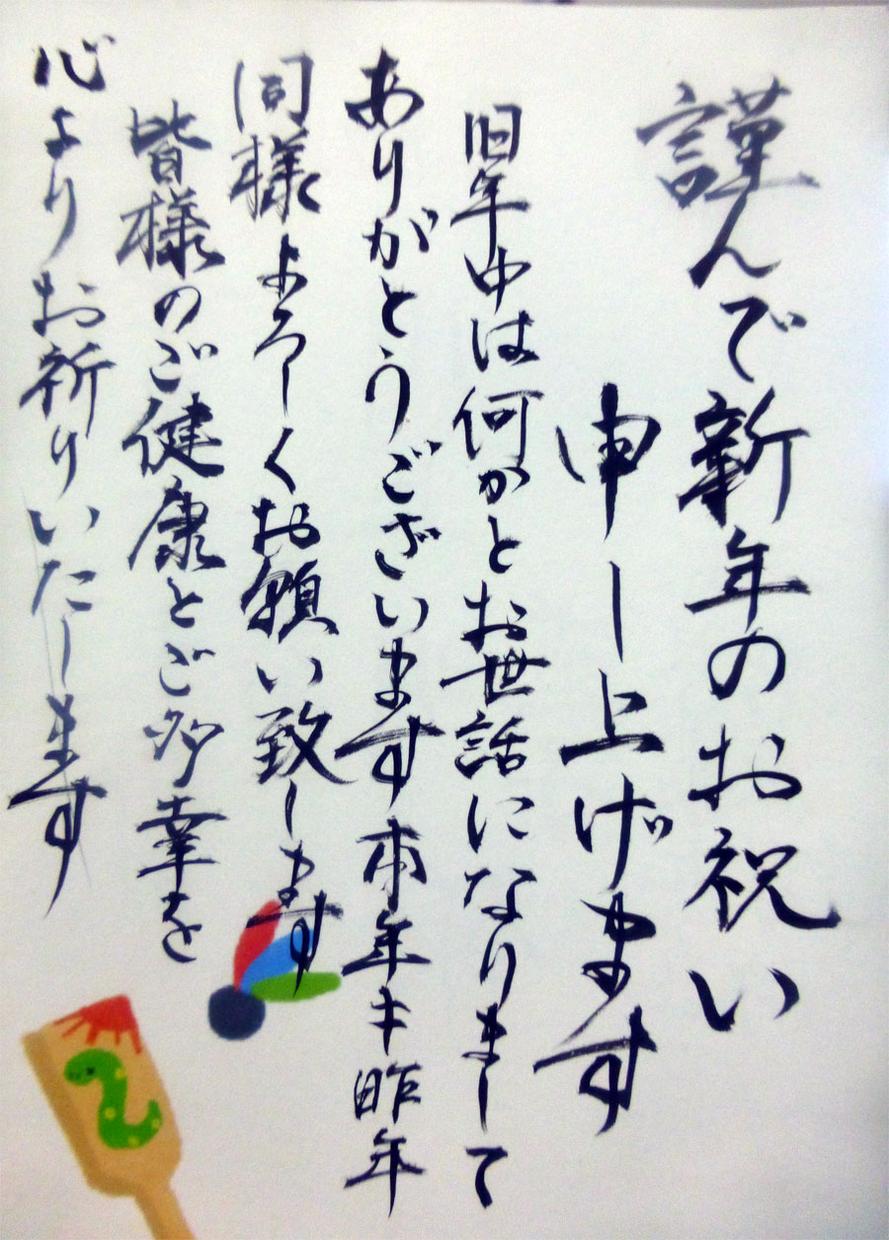 謹んで新年のお祝い
申し上げます
旧年中は何かとお世話になりまして
ありがとうございます本年も昨年
同様よろしくお願い致します
皆様のご健康とご多幸を
心よりお祈りいたします